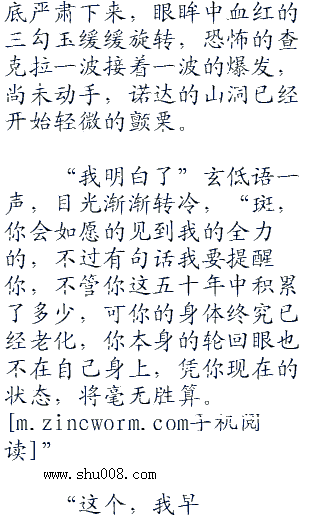 底严肃下来，眼眸中血红的
三勾玉缓缓旋转，恐怖的查
克拉一波接着一波的爆发，
尚未动手，诺达的山洞已经
开始轻微的颤栗。
“我明白了”玄低语一
声，目光渐渐转冷，“斑，
你会如愿的见到我的全力
的，不过有句话我要提醒
你，不管你这五十年中积累
了多少，可你的身体终究已
经老化，你本身的轮回眼也
不在自己身上，凭你现在的
状态，将毫无胜算。
[m.zincworm.com手机阅
读]”
www.shu008.com
“这个，我早